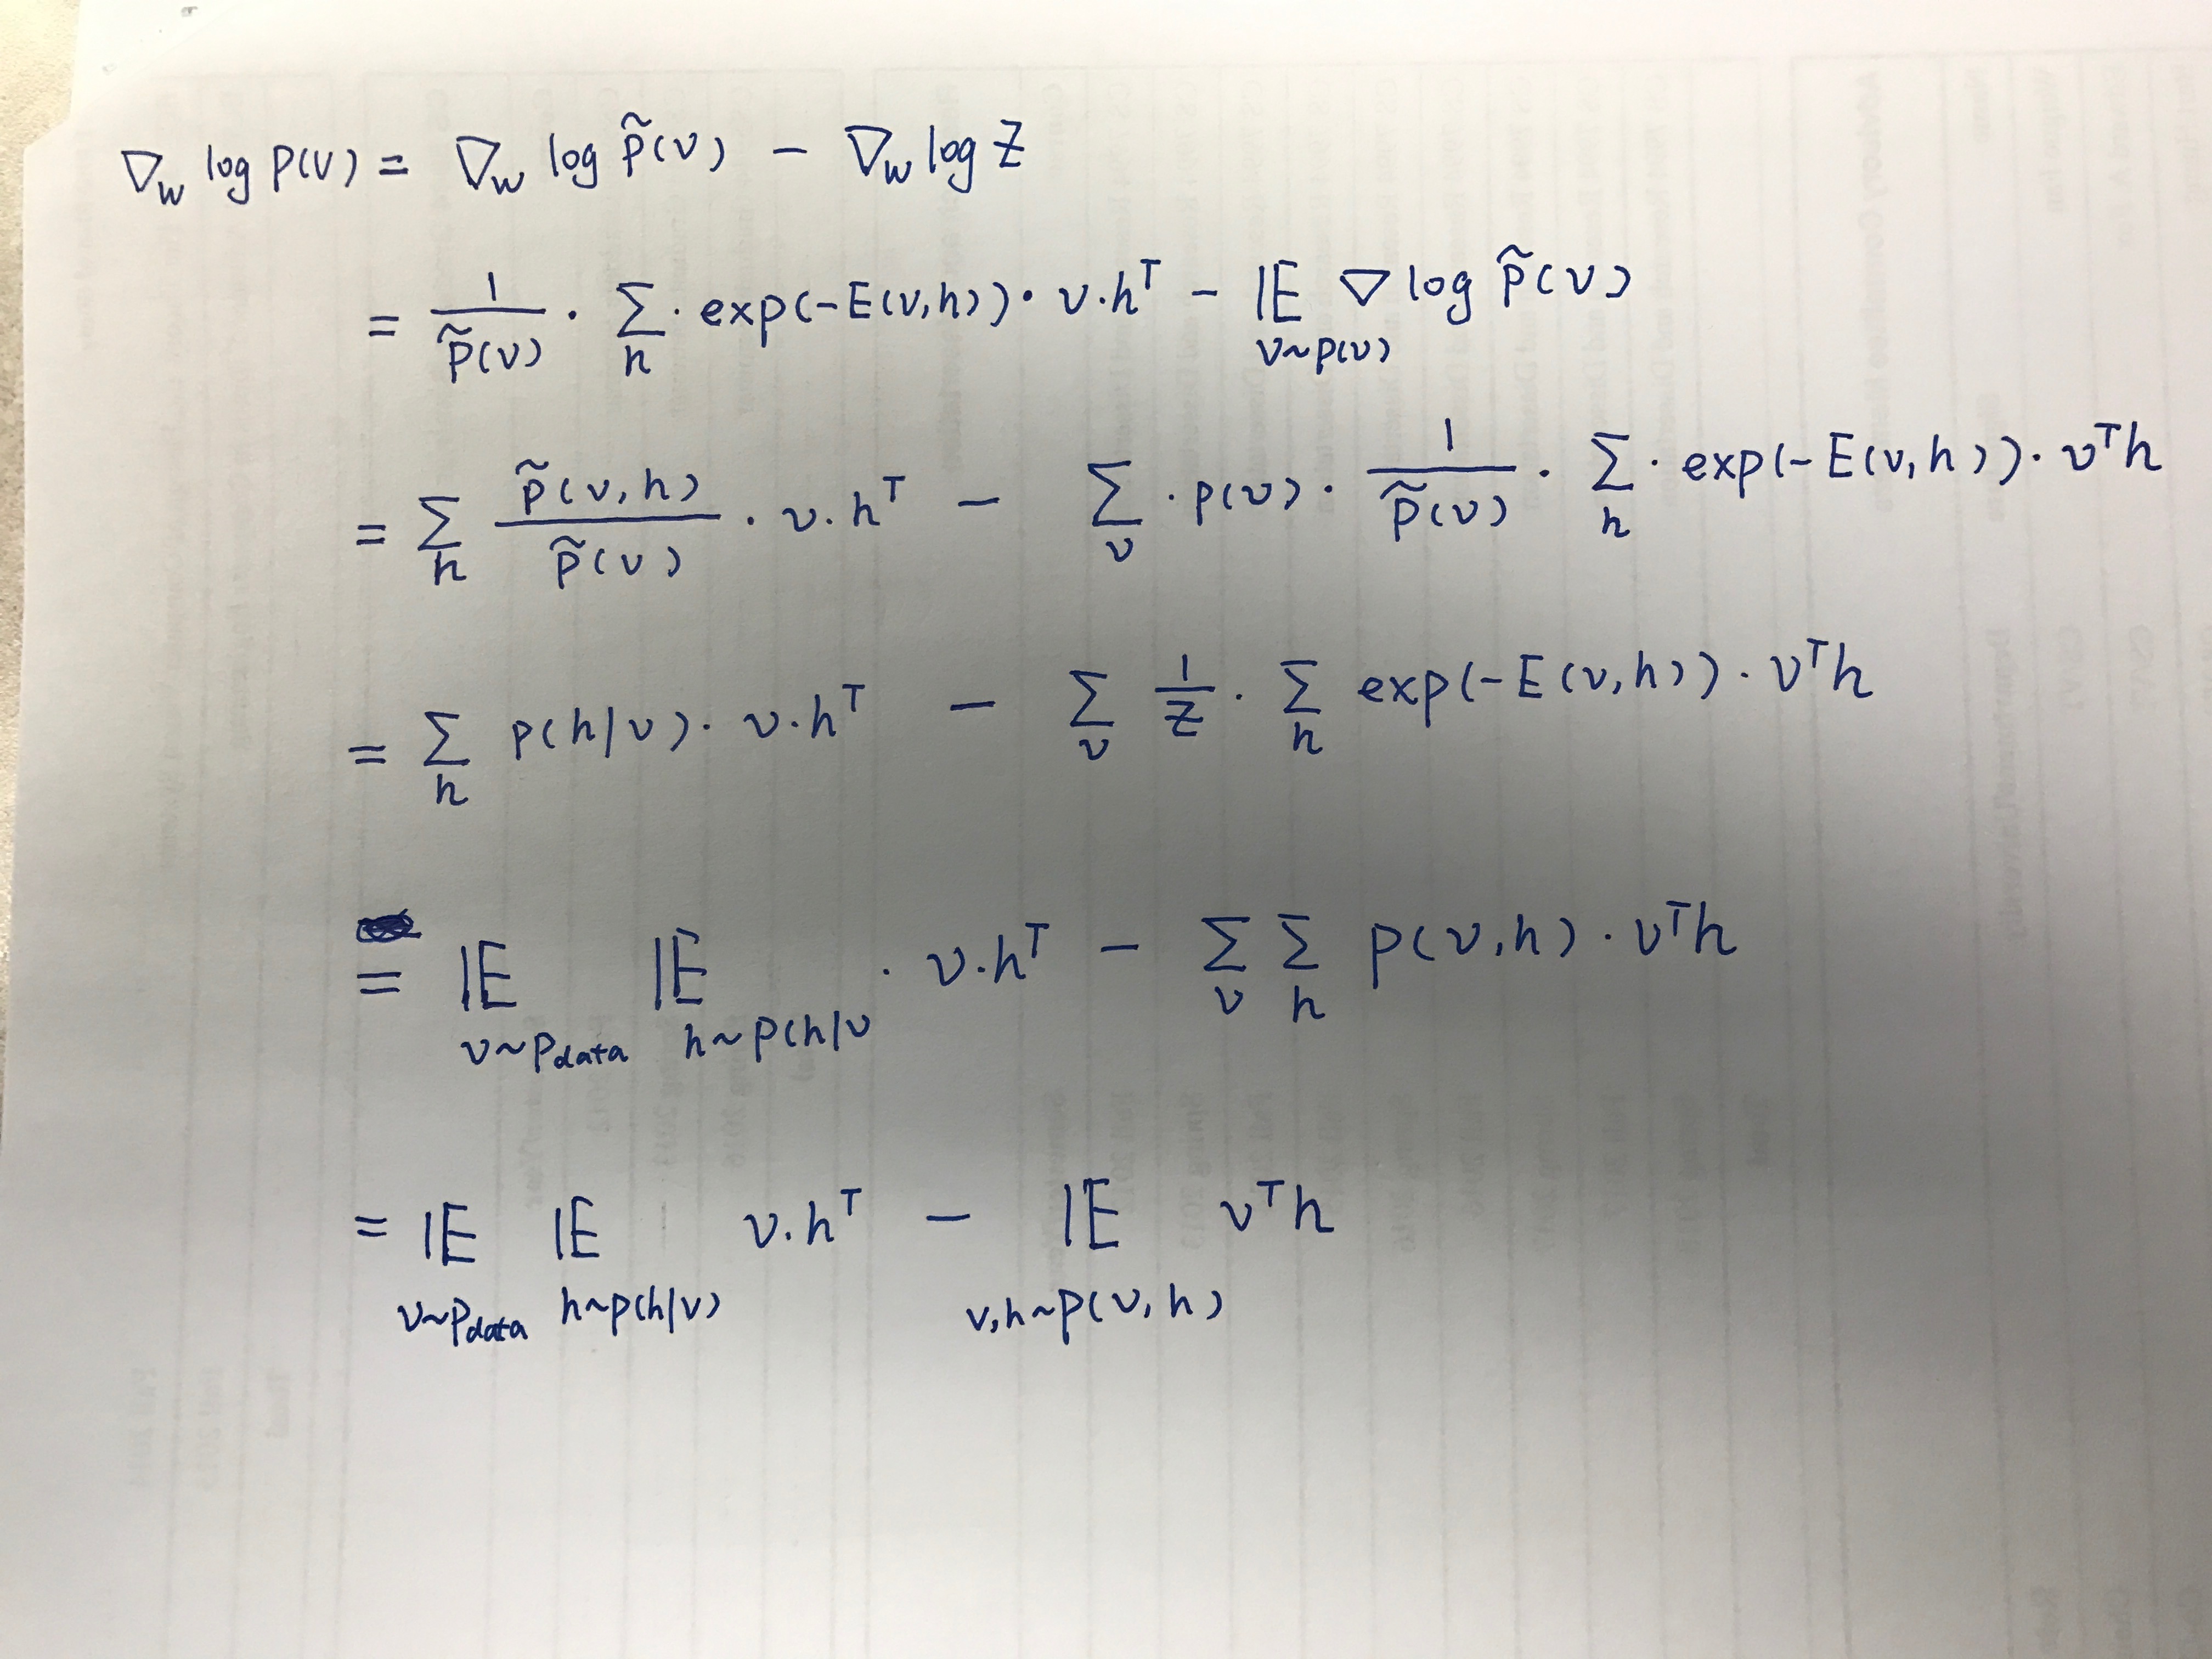 ∇_w log P(v) = ∇_w log p̃(v) − ∇_w log Z
= 1/p̃(v) · Σ_h · exp(-E(v,h)) · v·h^T − 𝔼_{v~p(v)} ∇ log p̃(v)
= Σ_h p̃(v,h)/p̃(v) · v·h^T − Σ_v · p(v) · 1/p̃(v) · Σ_h · exp(-E(v,h)) · v^T h
= Σ_h p(h|v) · v·h^T − Σ_v 1/Z · Σ_h exp(-E(v,h)) · v^T h
= 𝔼_{v~p_data} 𝔼_{h~p(h|v} · v·h^T − Σ_v Σ_h p(v,h) · v^T h
= 𝔼_{v~p_data} 𝔼_{h~p(h|v)} v·h^T − 𝔼_{v,h~p(v,h)} v^T h